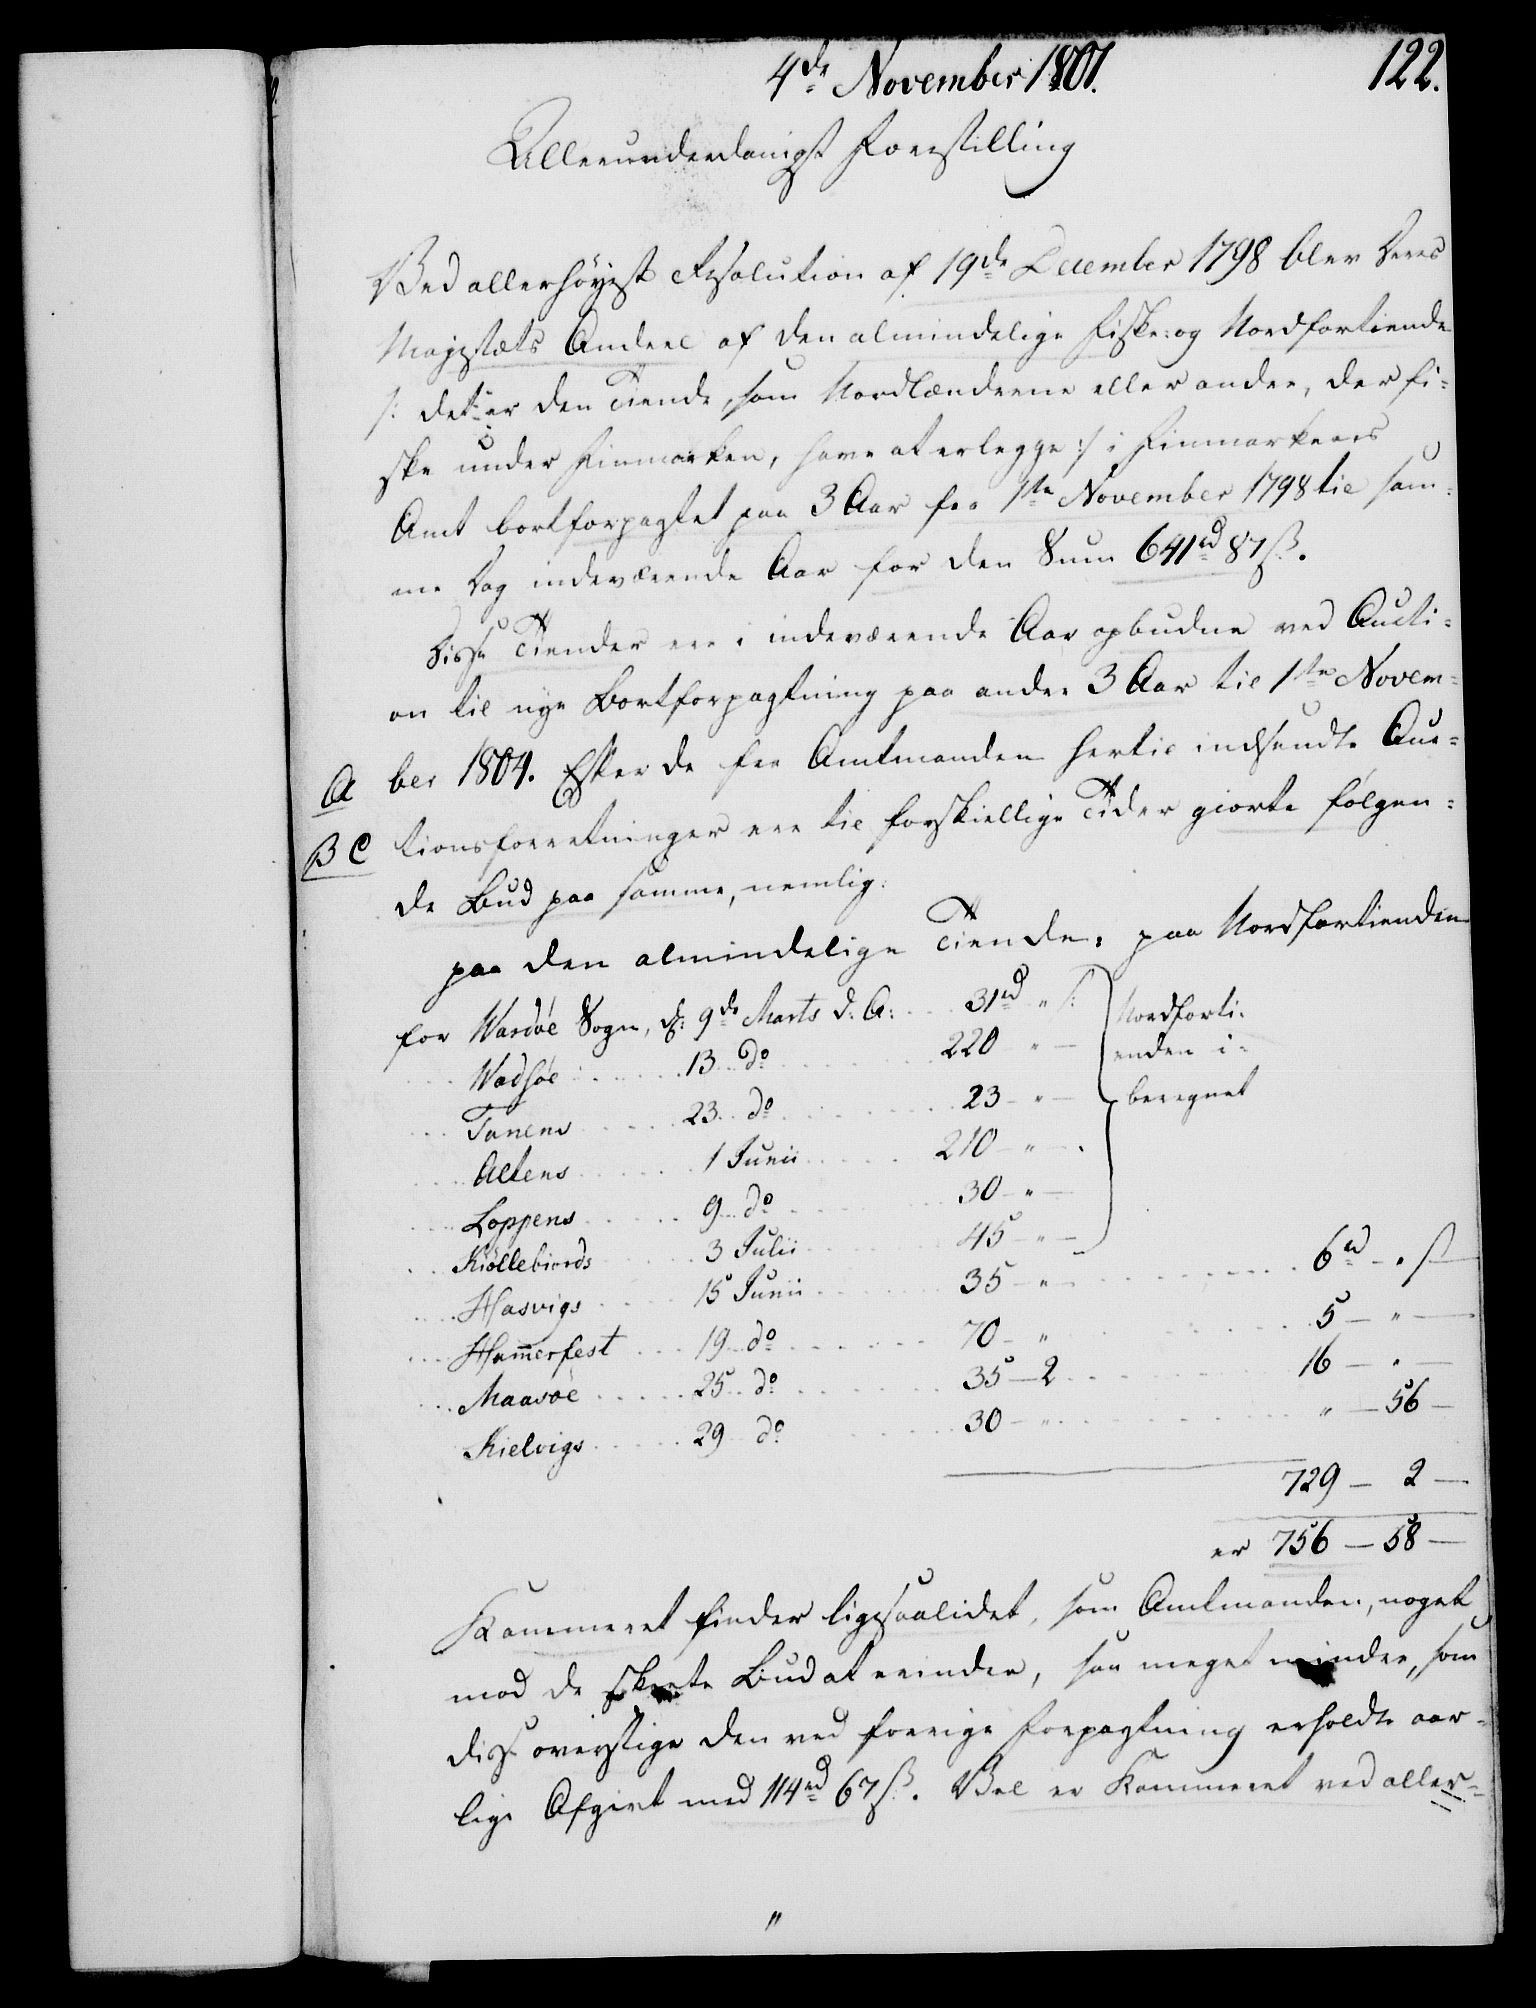 4de November 1801.
122.
Allerunderdanigst Forestilling
Ved allerhöyest Resolution af 19de December 1798 blev Deres
Majestæts Andeel af den almindelige Fiske- og Nordfartiende
/: det er den Tiende, som Nordlænderne eller andre, der fi-
ske under Finmarken, have at erlegge :/ i Finmarkens
Amt bortforpagtet paa 3 Aar fra 1ste November 1798 til sam-
me Dag indeværende Aar for den Sum 641rd 87 ß.
Disse Tiender ere i indeværende Aar opbudne ved Aucti-
on til nye Bortforpagtning paa andre 3 Aar til 1ste Novem-
A ber 1804. Efter de fra Amtmanden hertil indsendte Auc-
B C tionsforretninger ere til forskiellige Tider giorte følgen-
de Bud paa samme, nemlig:
paa den almindelige Tiende: paa Nordfartienden
for Wardøe Sogn, d: 9de Marts d: A: 31rd " ß: Nordfarti-
Wadsøe 13 do 220 " — enden i-
Tanens 23 do 23 — " — beregnet
Altens 1 Junii 210 — "
Loppens 9 do 30 — " —
Kiöllefiords 3 Julii 45 — " —
Hasvigs 15 Junii 35 — " 6rd — " ß
Hammerfest 19 do 70 — " 5 — " —
Maasöe 25 do 35 — 2 16 — " —
Kielvigs 29 do 30 — " " — 56 —
729 — 2 —
er 756 — 58 —
Kammeret finder ligesaalidet, som Amtmanden, noget
mod de skeete Bud at erindre, saa meget mindre, som
disse overstige den ved forrige Forpagtning erholdte aar-
lige Afgivt med 114rd 67 ß. Vel er Kammeret ved aller-
"